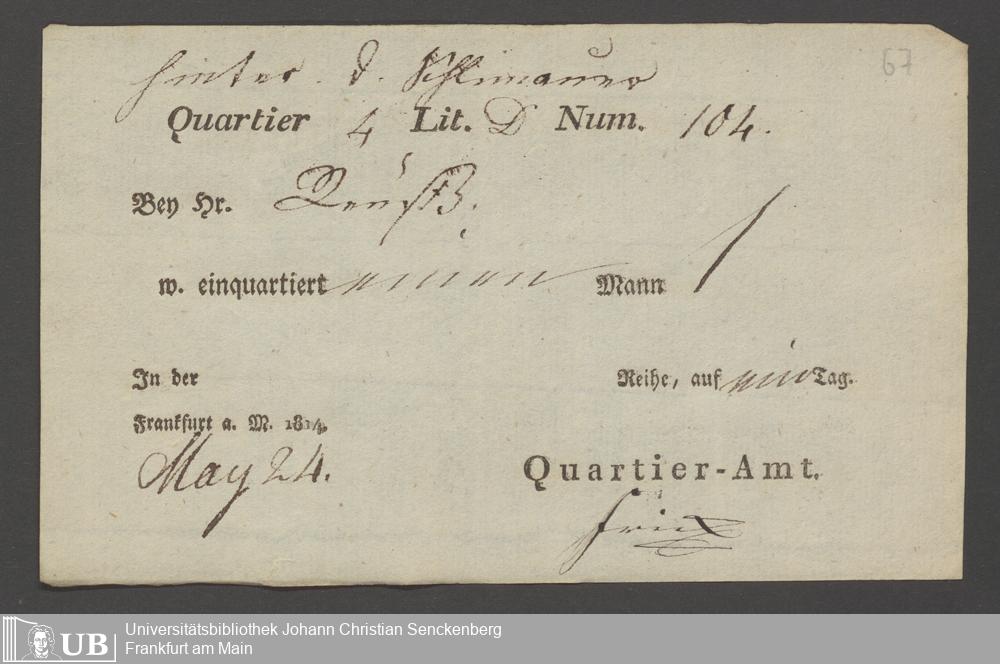 hinter d. Schlimauer
67
Quartier 4 Lit. D Num. 104.
Bey Hr. Reuß.
w. einquartiert einen Mann 1
In der Reihe, auf ein Tag.
Frankfurt a. M. 1814.
May 24.
Quartier-Amt.
UB
Universitätsbibliothek Johann Christian Senckenberg
Frankfurt am Main